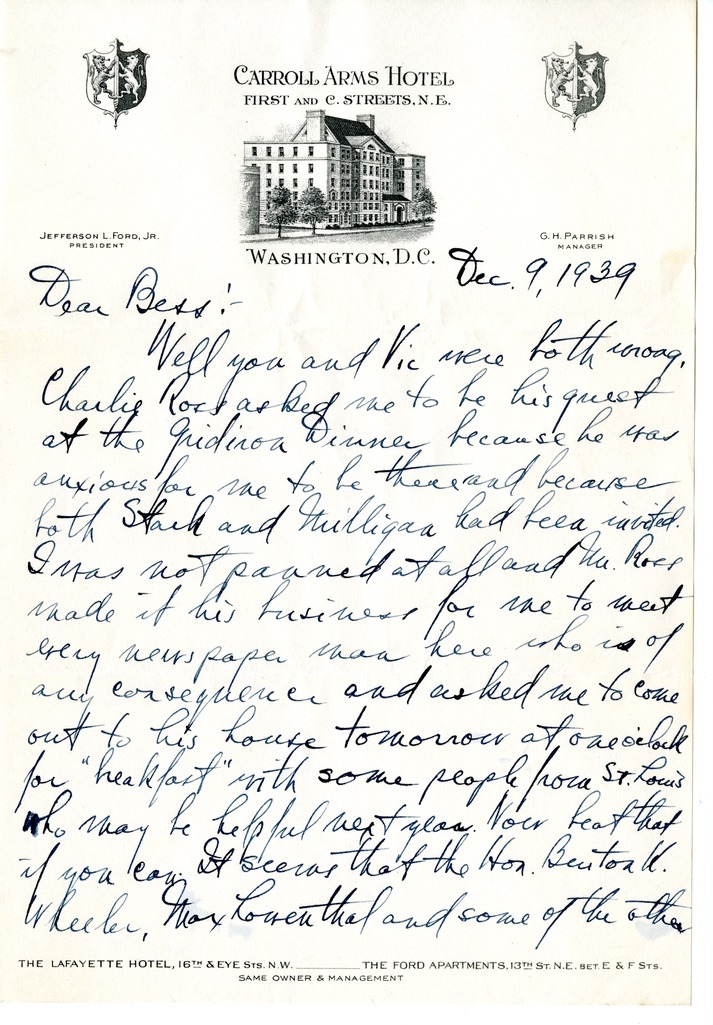 CARROLL ARMS HOTEL
FIRST AND C. STREETS, N.E.
JEFFERSON L. FORD, JR.
PRESIDENT
G. H. PARRISH
MANAGER
WASHINGTON, D.C.
Dec. 9, 1939
Dear Bess:-
Well you and Vic were both wrong.
Charlie Ross asked me to be his guest
at the Gridiron Dinner because he was
anxious for me to be there and because
both Stark and Milligan had been invited.
I was not panned at all and Mr. Ross
made it his business for me to meet
every newspaper man here who is of
any consequence and asked me to come
out to his house tomorrow at one o'clock
for "breakfast" with some people from St. Louis
who may be helpful next year. Now beat that
if you can. It seems that the Hon. Burton K.
Wheeler, Max Lowenthal and some of the other
THE LAFAYETTE HOTEL, 16TH & EYE STS. N.W. THE FORD APARTMENTS, 13TH ST. N.E. BET. E & F STS.
SAME OWNER & MANAGEMENT